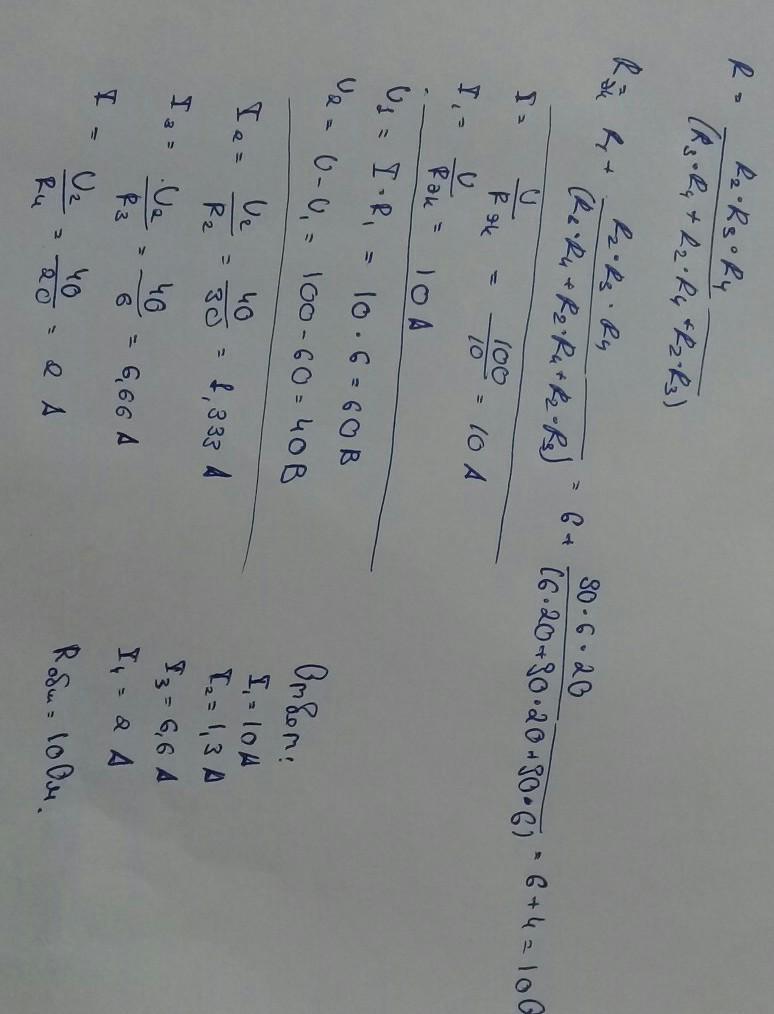 R = R₂·R₃·R₄ / (R₃·R₄ + R₂·R₄ + R₂·R₃)
Rэк = R₁ + R₂·R₃·R₄ / (R₃·R₄ + R₂·R₄ + R₂·R₃) = 6 + 30·6·20 / (6·20+30·20+30·6) = 6+4 = 10
I = U / Rэк = 100 / 10 = 10 A
I₁ = U / Rэк = 10 A
U₁ = I·R₁ = 10·6 = 60 В
U₂ = U - U₁ = 100 - 60 = 40 В
I₂ = U₂ / R₂ = 40 / 30 = 1,333 A
I₃ = U₂ / R₃ = 40 / 6 = 6,66 A
I = U₂ / R₄ = 40 / 20 = 2 A
Ответ:
I₁ = 10 A
I₂ = 1,3 A
I₃ = 6,6 A
I₄ = 2 A
Rобщ = 10 Ом.